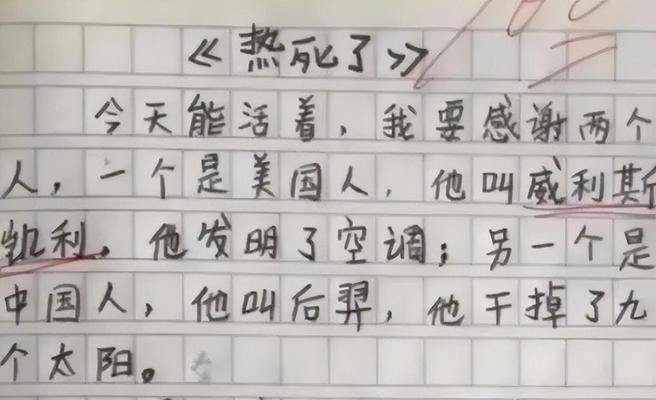 《热死了》
今天能活着，我要感谢两个
人，一个是美国人，他叫威利斯
凯利，他发明了空调；另一个是
中国人，他叫后羿，他干掉了九
个太阳。